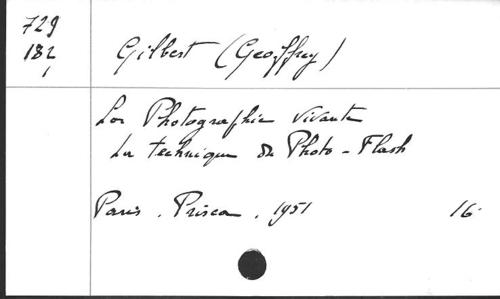 729
182
1
Gilbert (Geoffrey)
La Photographie vivante
La technique du Photo-Flash
Paris. Prisma. 1951 16